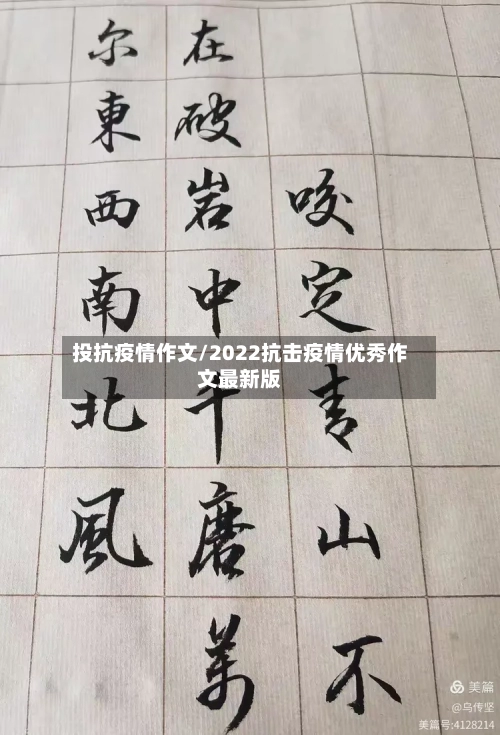 咬定青山不
在破岩中千磨萬
尔東西南北風
投抗疫情作文/2022抗击疫情优秀作
文最新版
美篇
@乌传坚
美篇号:4128214